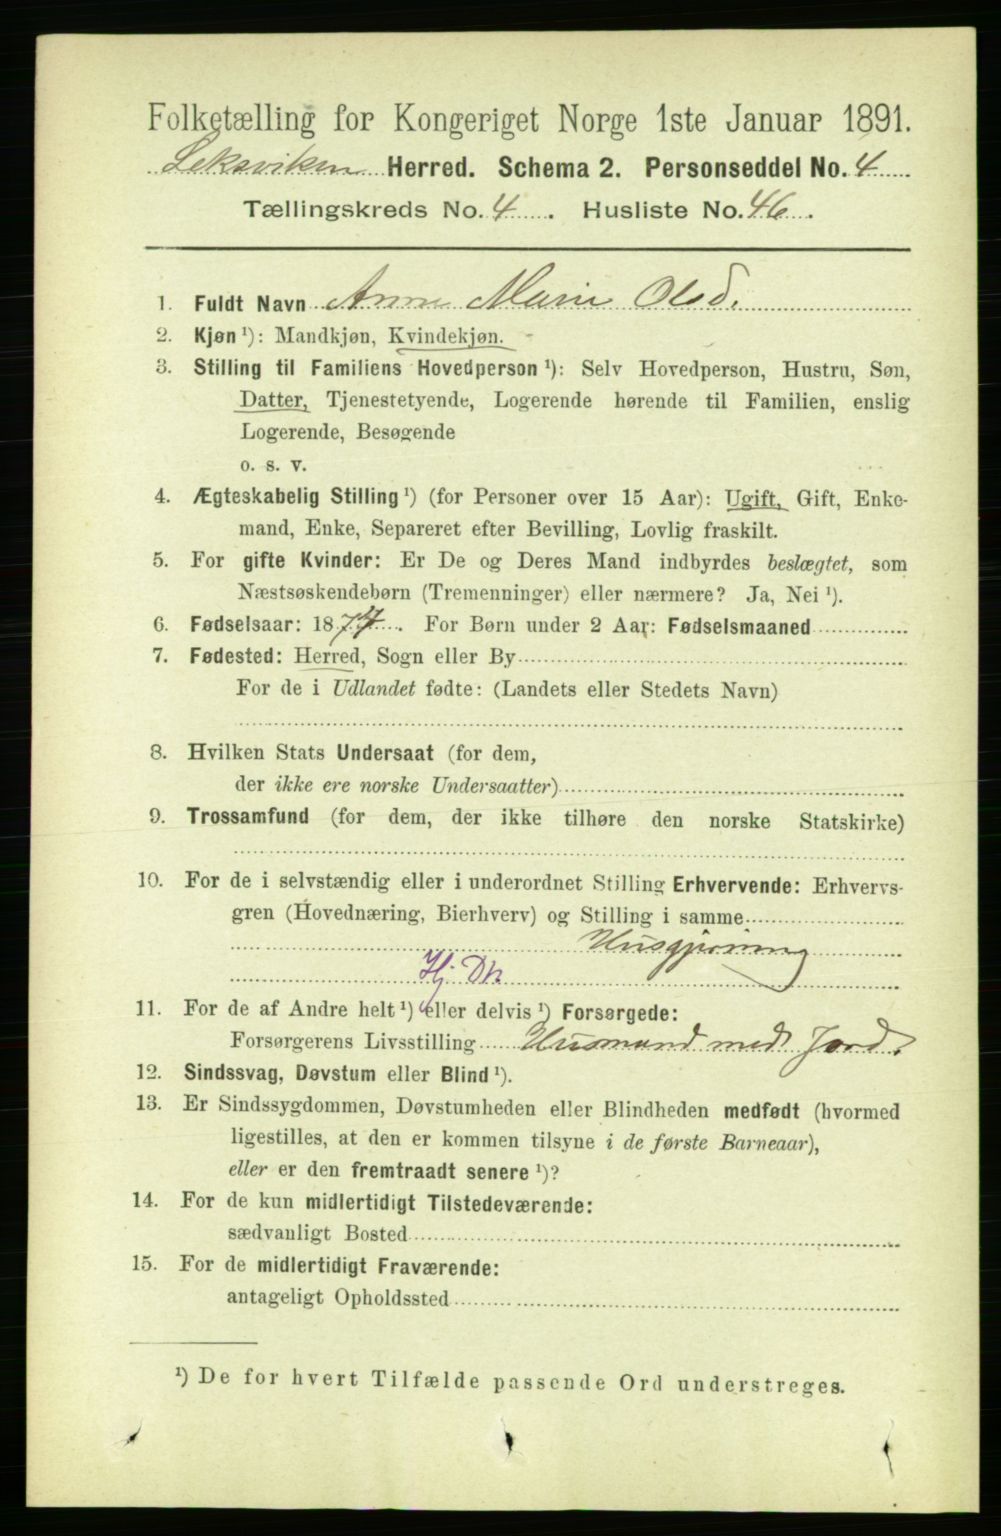 Folketælling for Kongeriget Norge 1ste Januar 1891.
Leksviken Herred. Schema 2. Personseddel No. 4
Tællingskreds No. 4. Husliste No. 46.
1. Fuldt Navn Anne Marie Olsd.
2. Kjøn ¹): Mandkjøn, Kvindekjøn.
3. Stilling til Familiens Hovedperson ¹): Selv Hovedperson, Hustru, Søn,
Datter, Tjenestetyende, Logerende hørende til Familien, enslig
Logerende, Besøgende
o. s. v.
4. Ægteskabelig Stilling ¹) (for Personer over 15 Aar): Ugift, Gift, Enke-
mand, Enke, Separeret efter Bevilling, Lovlig fraskilt.
5. For gifte Kvinder: Er De og Deres Mand indbyrdes beslægtet, som
Næstsøskendebørn (Tremenninger) eller nærmere? Ja, Nei ¹).
6. Fødselsaar: 18 . For Børn under 2 Aar: Fødselsmaaned
7. Fødested: Herred, Sogn eller By
For de i Udlandet fødte: (Landets eller Stedets Navn)
8. Hvilken Stats Undersaat (for dem,
der ikke ere norske Undersaatter)
9. Trossamfund (for dem, der ikke tilhøre den norske Statskirke)
10. For de i selvstændig eller i underordnet Stilling Erhvervende: Erhvervs-
gren (Hovednæring, Bierhverv) og Stilling i samme
Husgjerning
Hj.
11. For de af Andre helt ¹) eller delvis ¹) Forsørgede:
Forsørgerens Livsstilling Husmand med Jord.
12. Sindssvag, Døvstum eller Blind ¹).
13. Er Sindssygdommen, Døvstumheden eller Blindheden medfødt (hvormed
ligestilles, at den er kommen tilsyne i de første Barneaar),
eller er den fremtraadt senere ¹)?
14. For de kun midlertidigt Tilstedeværende:
sædvanligt Bosted
15. For de midlertidigt Fraværende:
antageligt Opholdssted
¹) De for hvert Tilfælde passende Ord understreges.